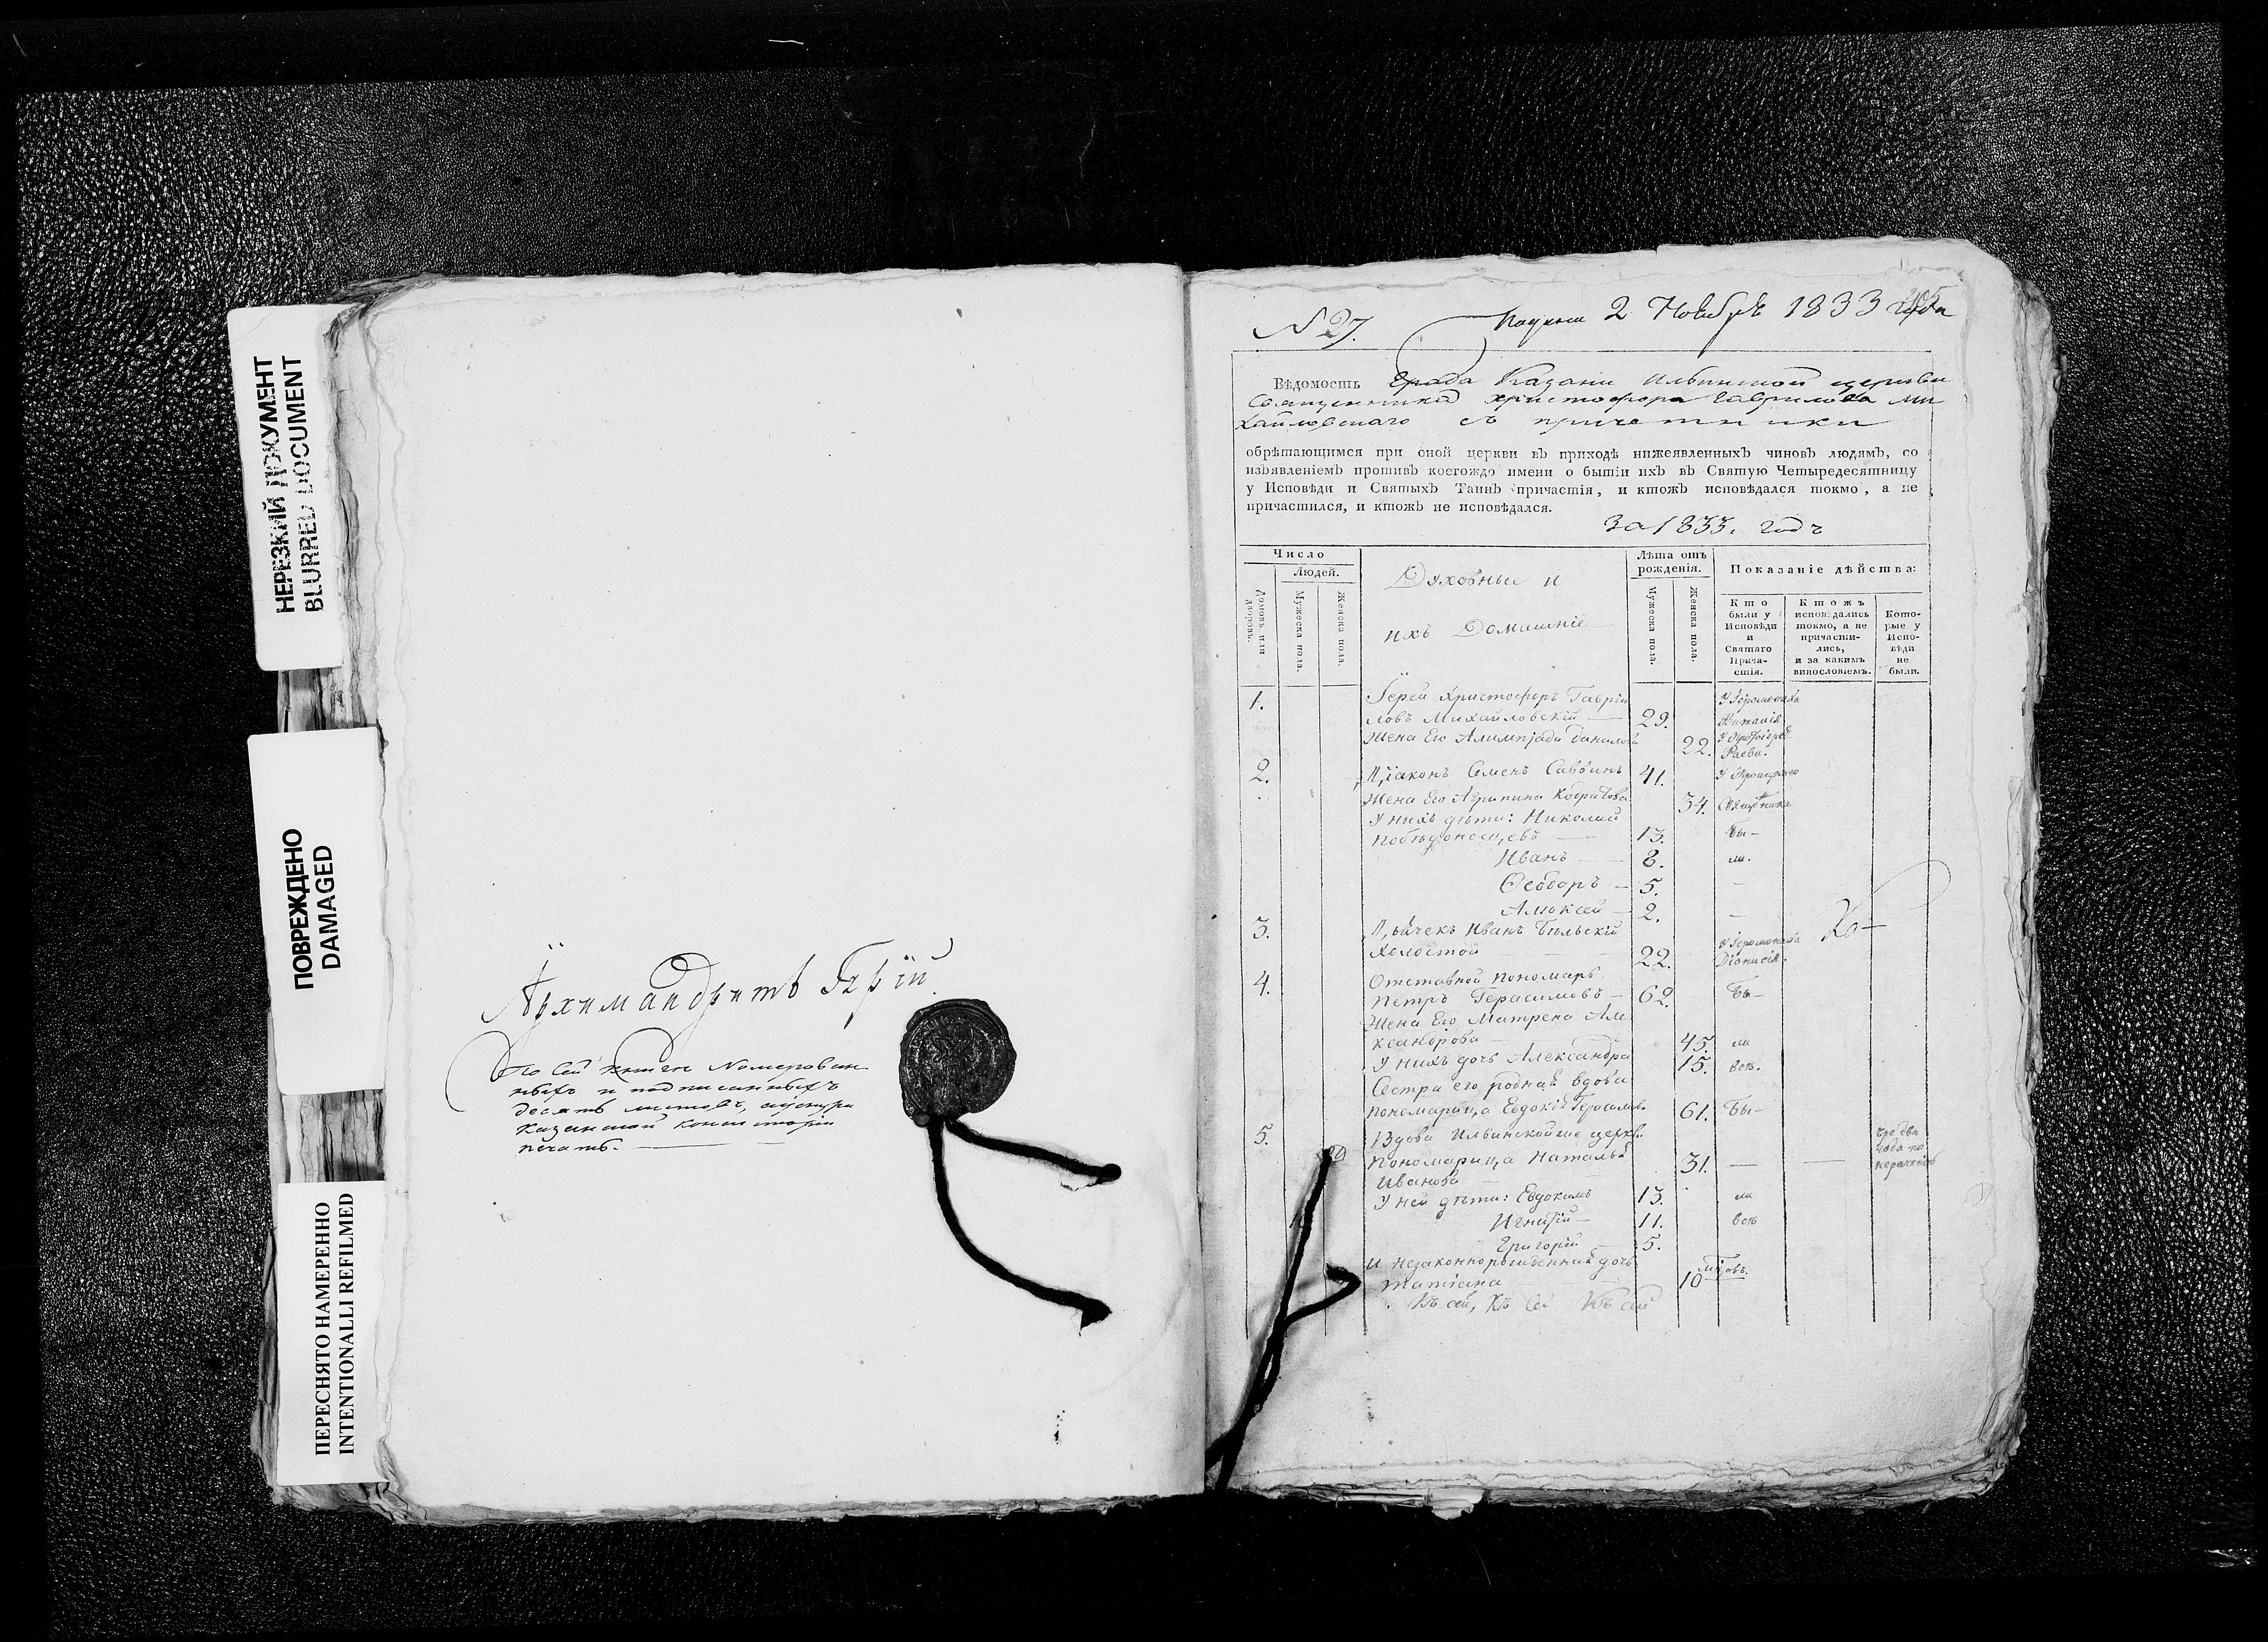 НЕРЕЗКИЙ ДОКУМЕНТ
BLURRED DOCUMENT
ПОВРЕЖДЕНО
DAMAGED
ПЕРЕСНЯТО НАМЕРЕННО
INTENTIONALLI REFILMED
Архимандритъ Гурій
По сей книгѣ Номерован
ныхъ и подписанныхъ
десять листовъ,
казанской консисторіи
печать.
N 27.
2 Ноября 1833 года
Вѣдомость Града Казани Ильинской церкви
Священника Христофора Гаврилова Ми
хайловскаго съ причетники
обрѣтающимся при оной церкви въ приходѣ нижеявленныхъ чиновъ людямъ, со
изъявленіемъ противъ коегождо имени о бытіи ихъ въ Святую Четыредесятницу
у Исповѣди и Святыхъ Таинъ причастія, и ктожъ исповѣдался токмо, а не
причастился, и ктожъ не исповѣдался.
За 1833. годъ
Число
Людей.
Домовъ или дворовъ.
Мужеска пола.
Женска пола.
Духовные и
ихъ Домашніе
Лѣта отъ рожденія.
Мужеска пола.
Женска пола.
Показаніе дѣйства:
Кто были у Исповѣди и Святаго Прича-стія.
Ктожъ исповѣдались токмо, а не причасти-лись, и за какимъ винословіемъ.
Кото-рые у Испо-вѣди не были.
1. Іерей Христофоръ Гаврiи У Іеромонаха
ловъ Михайловскій 29.
Жена Его Алимпіада Данилова 22. У Протоіерея Раева.
2. Діаконъ Семенъ Саввинъ 41. У
Жена Его Агрипина 34. Священика
У нихъ дѣти: Николай
Побѣдоносцевъ 13. бы-
Иванъ 8. ли.
Ѳеодоръ 5. —
Алѣксѣй 2. —
3. Дьячекъ Иванъ Бѣльскій
Холостой 22. У Іеромонаха Діонисія.
4. Отставной пономарь
Петръ Герасимовъ 62. Бы-
Жена Его Матрена Але
ксандрова 45. ли
У нихъ дочь Александра 15. всѣ.
Сестра его родная вдова
пономарица Евдокія Герасимов. 61. Бы-
5. Вдова Ильинской же церкви
Пономарица Наталья 31. — —
Иванова
У ней дѣти: Евдокимъ 13. ли
Игнатій 11. всѣ
Григорій 5.
И незаконнорожденная дочь
Татіана 10